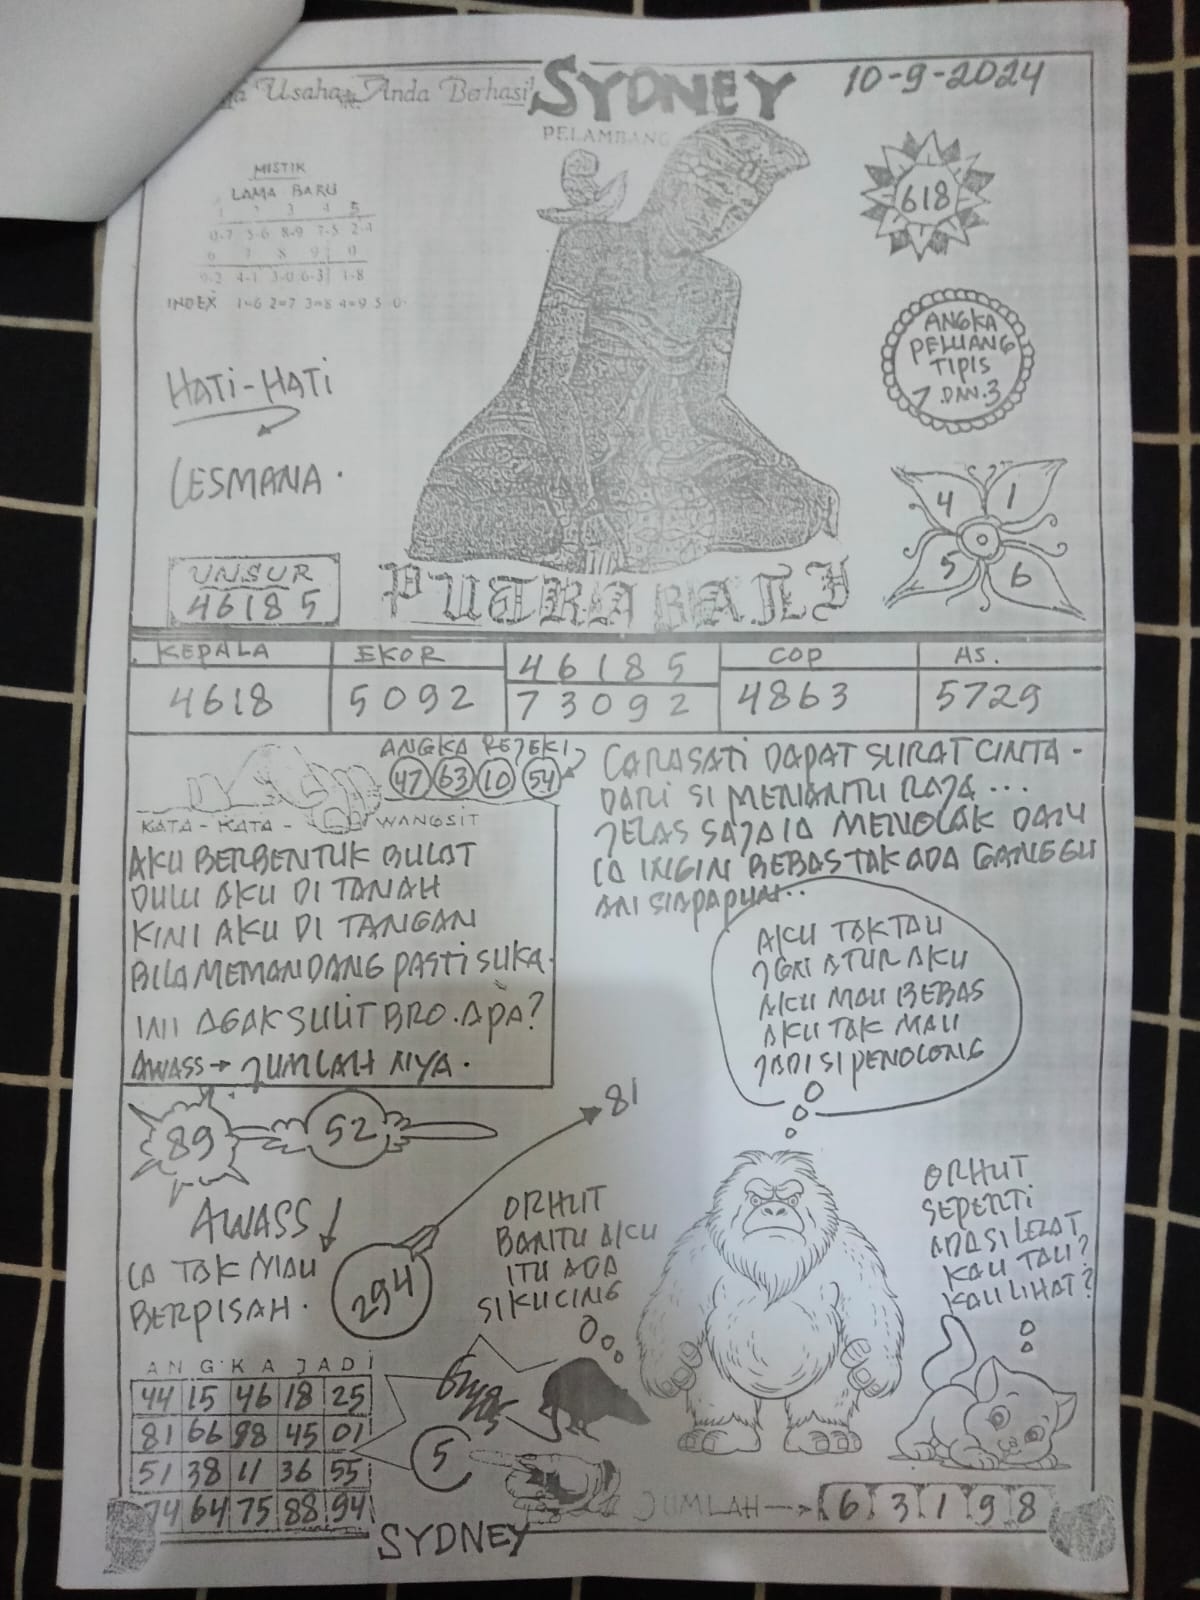 Usaha Anda Berhasil
SYDNEY
10-9-2024
PELAMBANG
MISTIK
LAMA BARU
1 2 3 4 5
0-7 5-6 8-9 7-5 2-4
6 7 8 9 0
9-2 4-1 3-0 6-3 1-8
INDEX 1=6 2=7 3=8 4=9 5 0
618
ANGKA
PELUANG
TIPIS
7 DAN 3
HATI-HATI
LESMANA.
4 1
5 6
UNSUR
46185
PUTRA BALI
KEPALA
4618
EKOR
5092
46185
73092
COP
4863
AS.
5729
ANGKA REJEKI
47 63 10 54
KATA-KATA-WANGSIT
AKU BERBENTUK BULAT
DULU AKU DI TANAH
KINI AKU DI TANGAN
BILA MEMANDANG PASTI SUKA.
INI AGAK SULIT BRO. APA?
AWASS→ JUMLAHNYA.
CARASATI DAPAT SURAT CINTA-
DARI SI MENANTU RAJA...
JELAS SAJA IA MENOLAK DAN
IA INGIN BEBAS TAK ADA GANGGU
ANI SIAPAPUN..
AKU TAK TAU
JGN ATUR AKU
AKU MAU BEBAS
AKU TAK MAU
JADI SI PENOLONG
89 52
81
AWASS
IA TAK MAU
BERPISAH.
294
ORHUT
BANTU AKU
ITU ADA
SI KUCING
ORHUT
SEPERTI
ADA SI LEZAT
KAU TAU?
KAU LIHAT?
ANGKA JADI
44 15 46 18 25
81 66 98 45 01
51 38 11 36 55
74 64 75 88 94
5
JUMLAH→ 6 3 1 9 8
SYDNEY